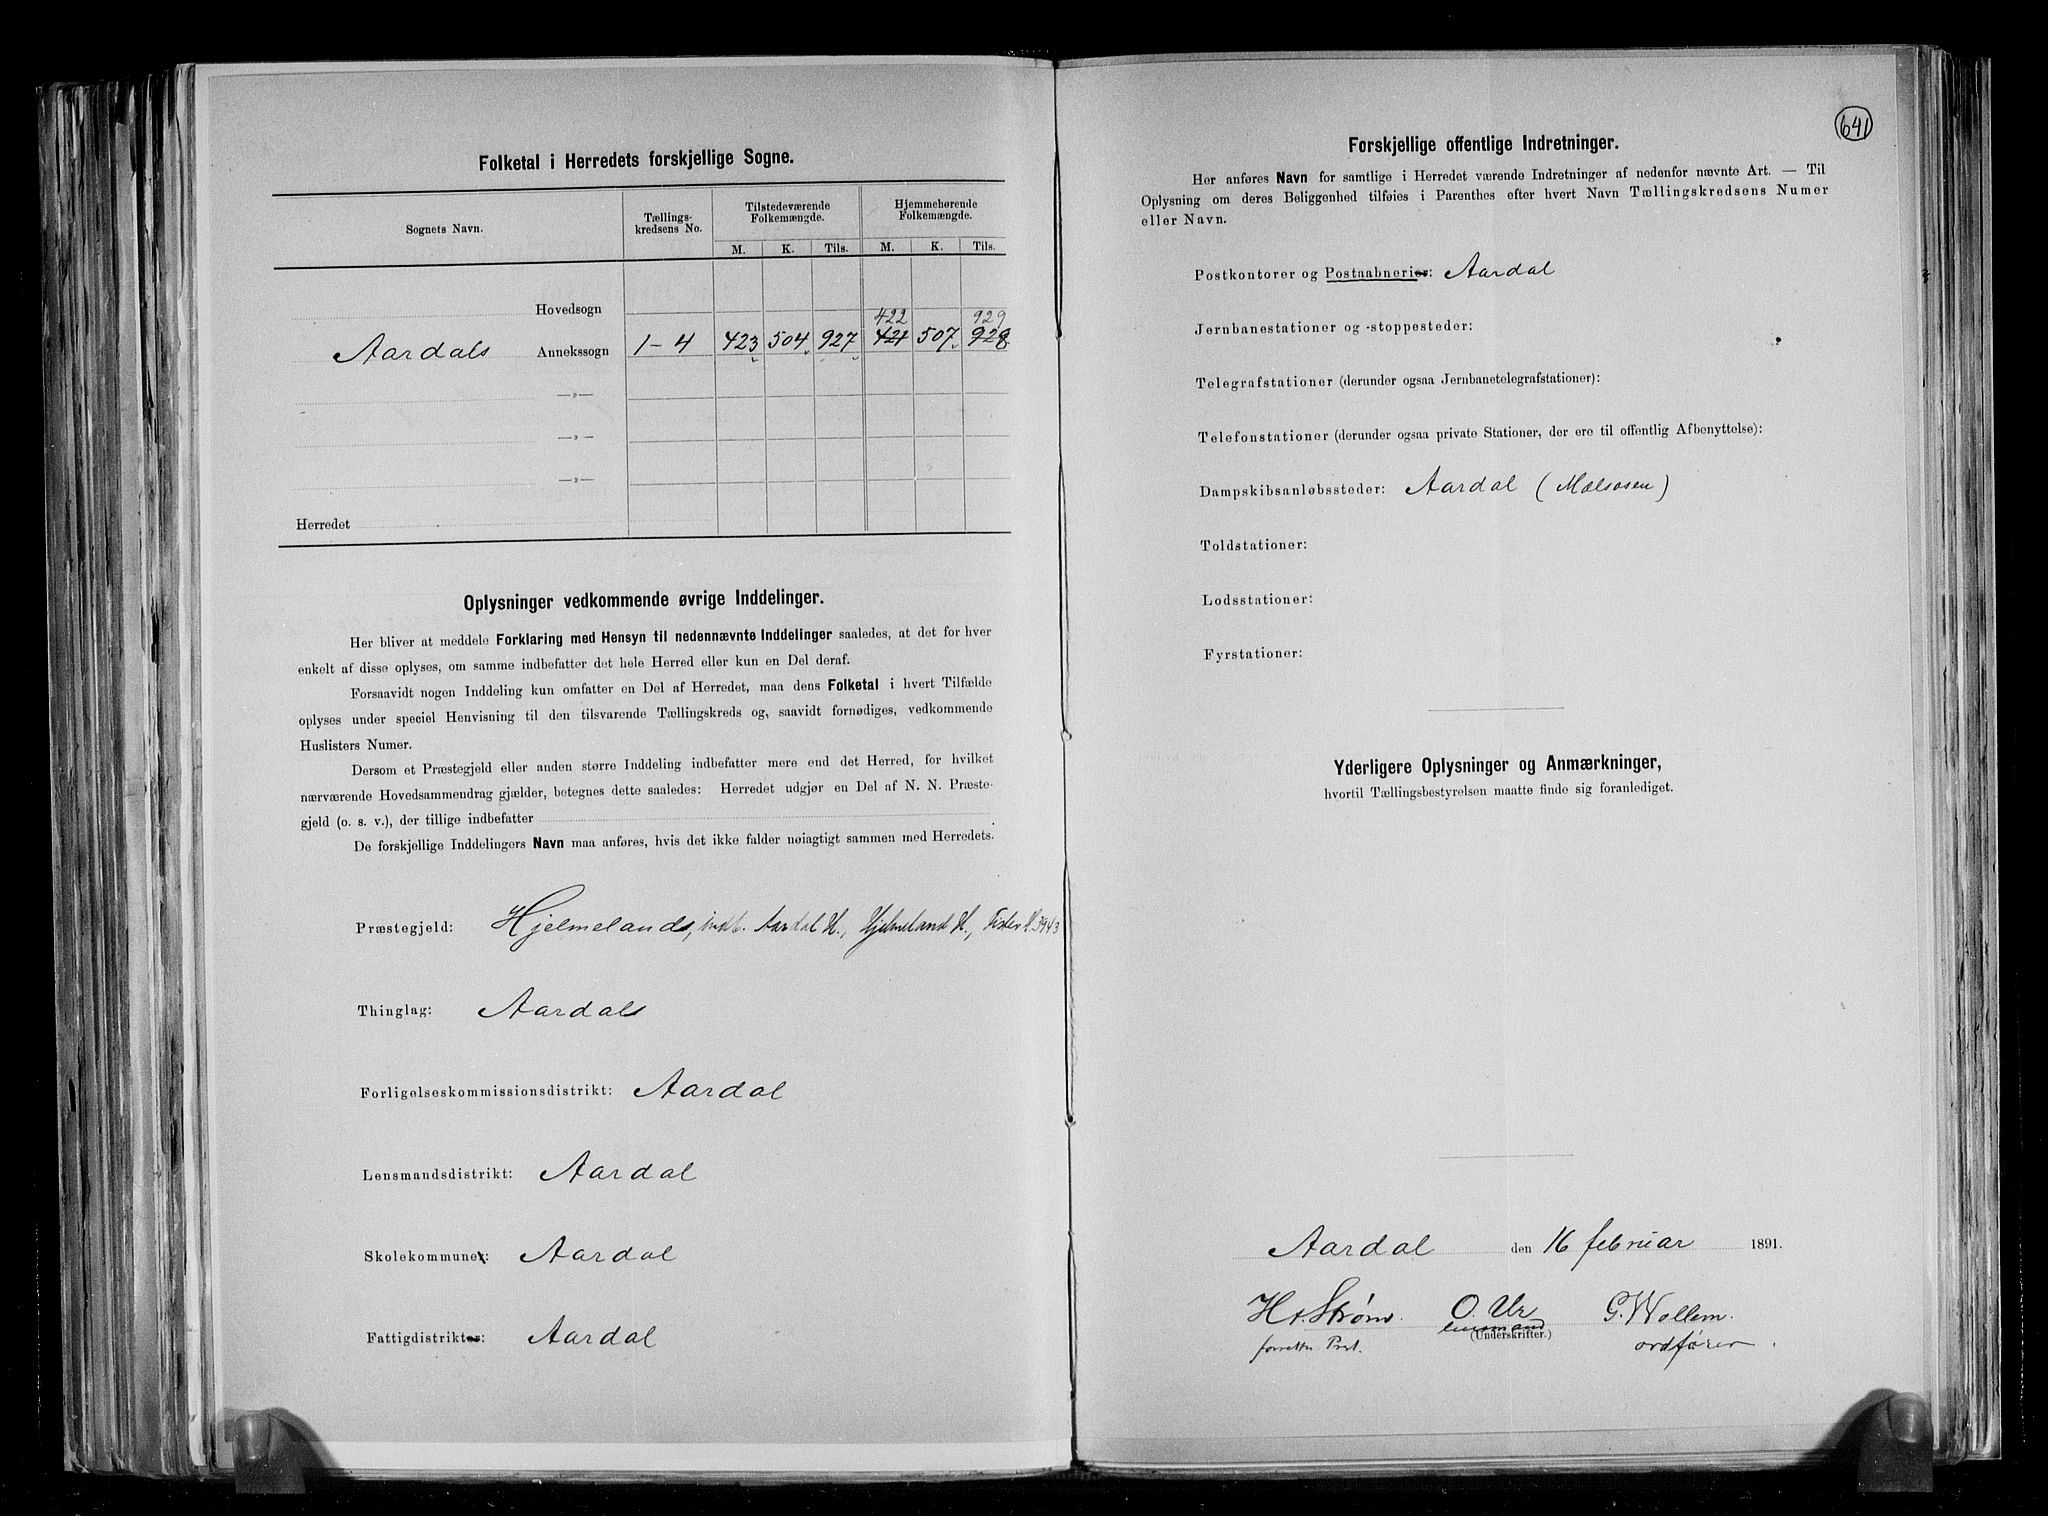 Folketal i Herredets forskjellige Sogne.
Sognets Navn. Tællings- kredsens No. Tilstedeværende Folkemængde. Hjemmehørende Folkemængde.
M. K. Tils. M. K. Tils.
Hovedsogn
422 929
Aardals Annekssogn 1-4 423 504 927 421 507 928
—„—
—„—
—„—
Herredet
Oplysninger vedkommende øvrige Inddelinger.
Her bliver at meddele Forklaring med Hensyn til nedennævnte Inddelinger saaledes, at det for hver
enkelt af disse oplyses, om samme indbefatter det hele Herred eller kun en Del deraf.
Forsaavidt nogen Inddeling kun omfatter en Del af Herredet, maa dens Folketal i hvert Tilfælde
oplyses under speciel Henvisning til den tilsvarende Tællingskreds og, saavidt fornødiges, vedkommende
Huslisters Numer.
Dersom et Præstegjeld eller anden større Inddeling indbefatter mere end det Herred, for hvilket
nærværende Hovedsammendrag gjælder, betegnes dette saaledes: Herredet udgjør en Del af N. N. Præste-
gjeld (o. s. v.), der tillige indbefatter
De forskjellige Inddelingers Navn maa anføres, hvis det ikke falder nøiagtigt sammen med Herredets.
Præstegjeld: Hjelmelands, indb. Aardal H., Hjelmeland H., Fister H. 3943
Thinglag: Aardals
Forligelseskommissionsdistrikt: Aardal
Lensmandsdistrikt: Aardal
Skolekommuner: Aardal
Fattigdistrikter: Aardal
641
Forskjellige offentlige Indretninger.
Her anføres Navn for samtlige i Herredet værende Indretninger af nedenfor nævnte Art. — Til
Oplysning om deres Beliggenhed tilføies i Parenthes efter hvert Navn Tællingskredsens Numer
eller Navn.
Postkontorer og Postaabnerier: Aardal
Jernbanestationer og -stoppesteder:
Telegrafstationer (derunder ogsaa Jernbanetelegrafstationer):
Telefonstationer (derunder ogsaa private Stationer, der ere til offentlig Afbenyttelse):
Dampskibsanløbssteder: Aardal (Mælsosen)
Toldstationer:
Lodsstationer:
Fyrstationer:
Yderligere Oplysninger og Anmærkninger,
hvortil Tællingsbestyrelsen maatte finde sig foranlediget.
Aardal den 16 februar 1891.
H. Strøm. O. Ur G. Wollem.
lensmand
(Underskrifter.)
ordfører.